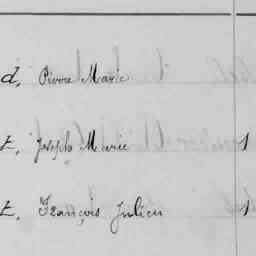 d, Pierre Marie
t, Joseph Marie 1
t, François Julien 1